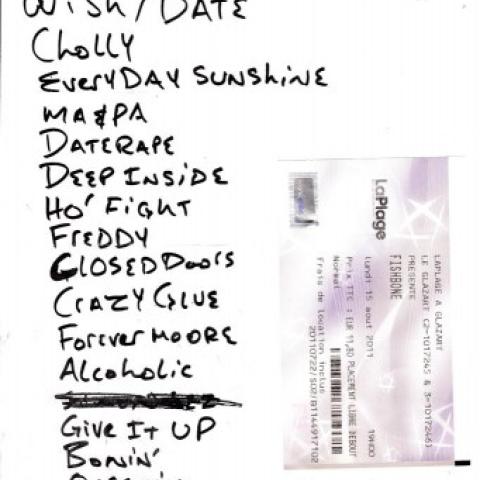 WISH / DATE
CHOLLY
EVERYDAY SUNSHINE
MA & PA
DATERAPE
DEEP INSIDE
HO' FIGHT
FREDDY
CLOSED DOORS
CRAZY GLUE
FOREVER MOORE
Alcoholic
GIVE IT UP
BONIN'
LaPlage
LAPLAGE A GLAZART
LE GLAZART C2-1017245 & 3-1017246)
PRESENTE
FISHBONE
Lundi 15 aout 2011 19H00
Prix TTC : EUR 11,80 PLACEMENT LIBRE DEBOUT
Normal
Frais de location inclus